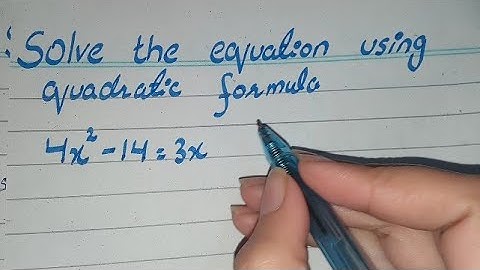 Solve the equation using
quadratic formula
4x² - 14 = 3x